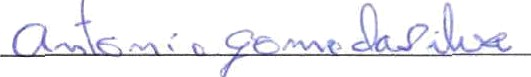 Antonio gomedasilva